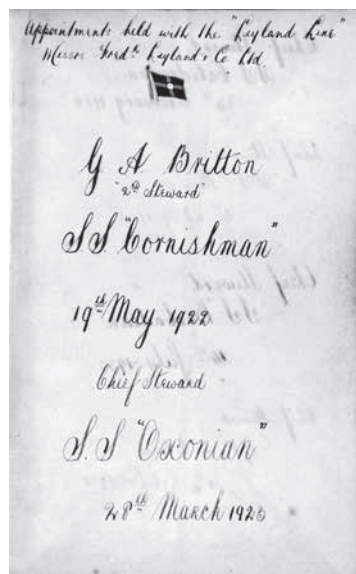 Appointments held with the "Leyland Line"
Messrs Fredk Leyland & Co Ltd
G A Britton
"2nd Steward"
S.S. "Cornishman"
19th May 1922
Chief Steward
S.S "Oxonian"
28th March